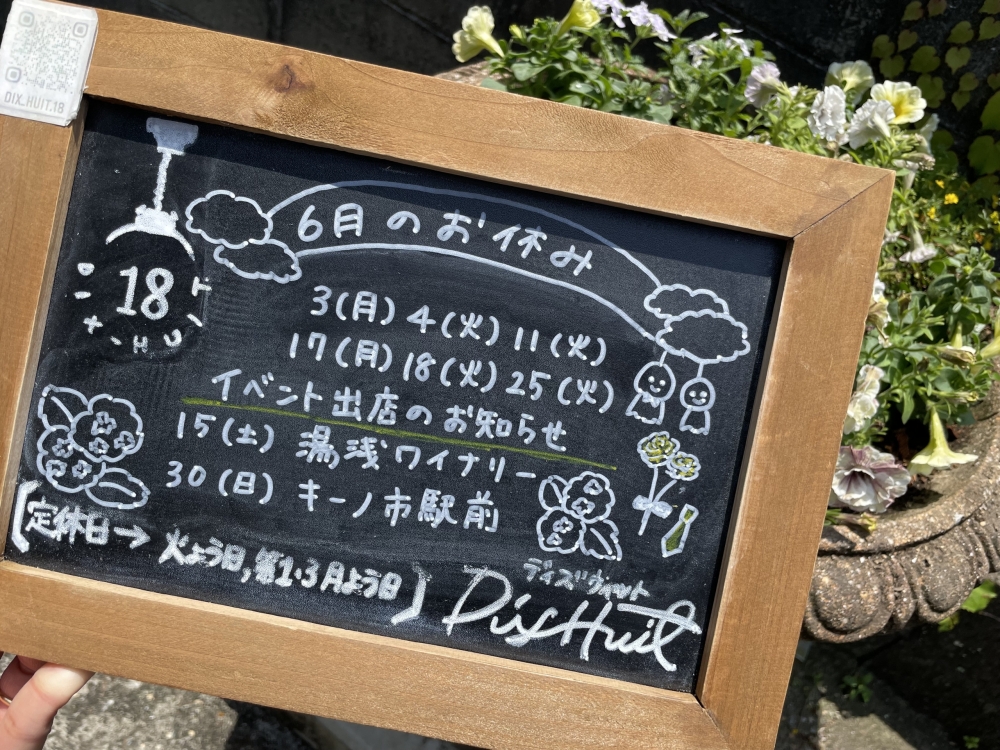 DIX_HUIT.18
18
DIX HUIT
6月のお休み
3(月) 4(火) 11(火)
17(月) 18(火) 25(火)
イベント出店のお知らせ
15(土) 湯浅ワイナリー
30(日) キーノ市駅前
[定休日→ 火よう日,第1・3月よう日]
ディズヴィット
DixHuit